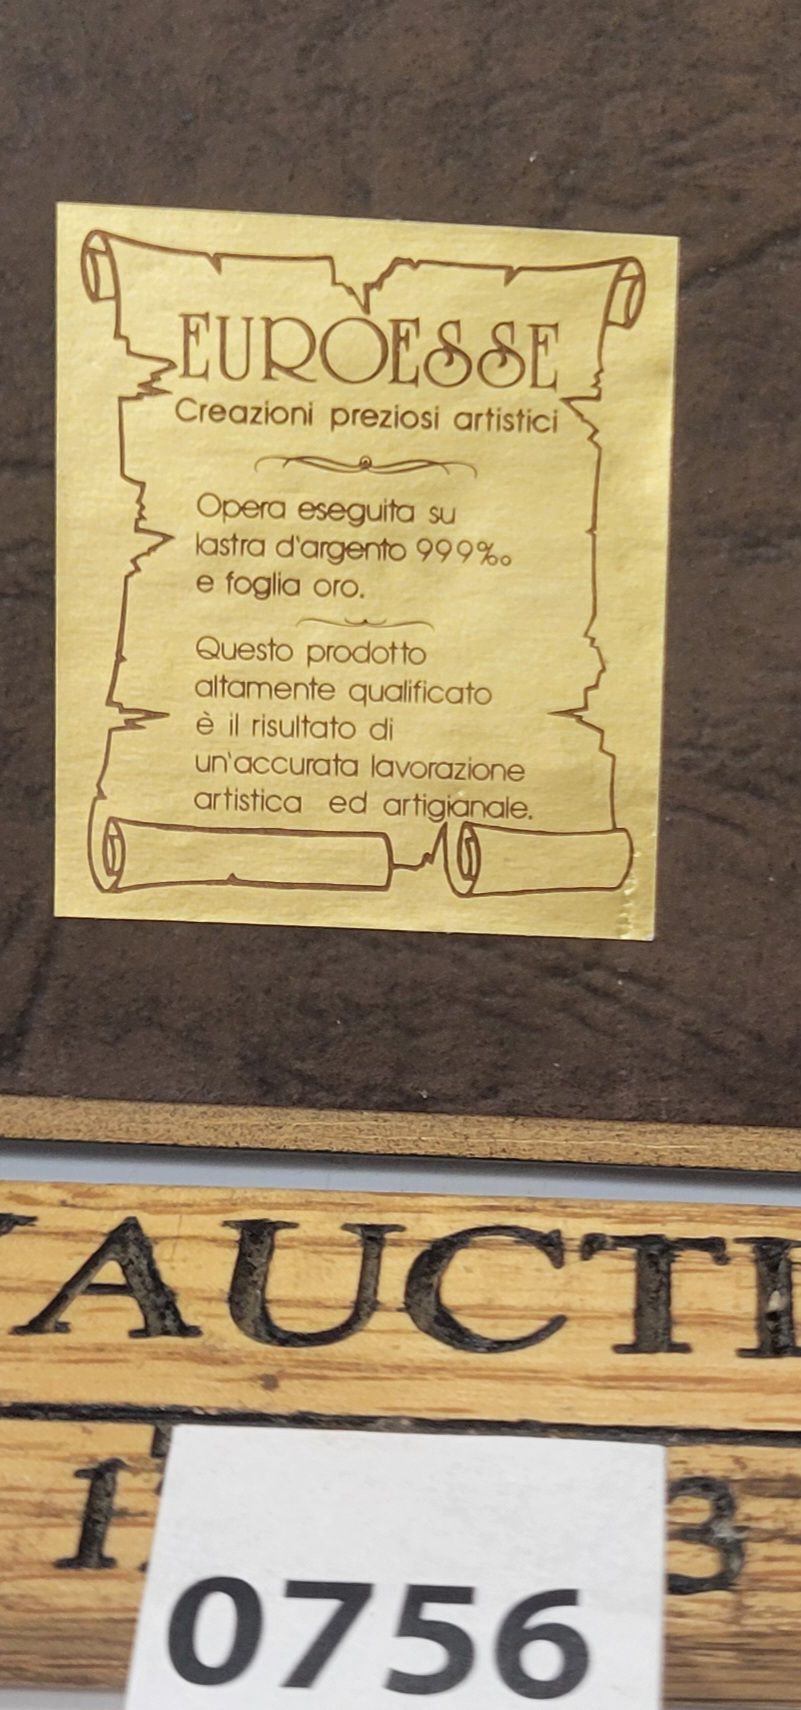 EUROESSE
Creazioni preziosi artistici
Opera eseguita su
lastra d'argento 999‰
e foglia oro.
Questo prodotto
altamente qualificato
è il risultato di
un'accurata lavorazione
artistica ed artigianale.
AUCTI
3
0756